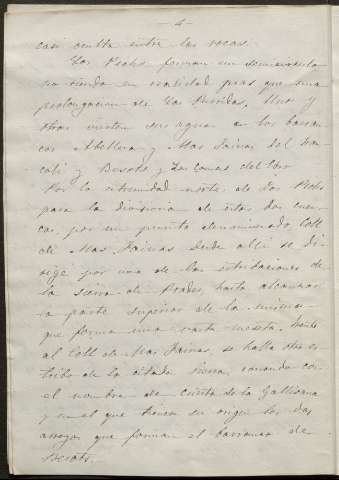 — 4 —
casi oculta entre las rocas.
Los Pechs forman un semicirculo
no siendo en realidad mas que una
prolongacion de las Moridas. Uno y
otras vierten sus aguas en los barran
cos Abellera y Mas Fainas del
y Besots y Las Comas del
Por la estremidad norte de los Pechs
pasa la divisoria de estas dos cuen
cas, por un punto denominado Coll
de Mas Fainas. Desde alli se di
rige por una de las estribaciones de
la sierra de Prades, hasta alcanzar
la parte superior de la misma
que forma una vasta meseta. Frente
al Coll de Mas Fainas, se halla otro es
tribo de la citada sierra, conocido con
el nombre de cuesta de la Gallicana
y en el que tienen su origen los dos
arroyos que forman el barranco de
Besots.